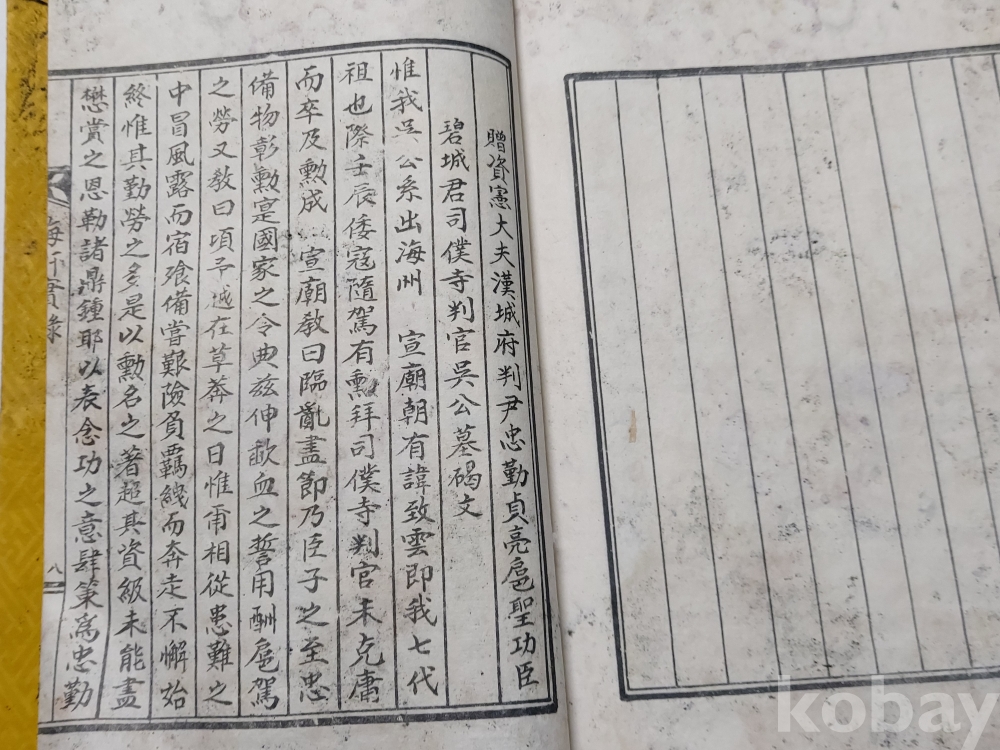 贈資憲大夫漢城府判尹忠勤貞亮扈聖功臣
碧城君司僕寺判官吳公墓碣文
惟我吳公系出海州 宣廟朝有諱致雲即我七代
祖也際壬辰倭寇隨駕有勳拜司僕寺判官未克庸
而卒及勳成 宣廟教曰臨亂盡節乃臣子之至忠
備物彰勳寔國家之令典茲伸歃血之誓用酬扈駕
之勞又教曰頃予越在草莽之日惟甭相從患難之
中冒風露而宿飱備嘗艱險負羈絏而奔走不懈始
終惟其勤勞之多是以勳名之著超其資級未能盡
懋賞之恩勒諸鼎鍾耶以表念功之意肆策為忠勤
海 實錄
八
kobay